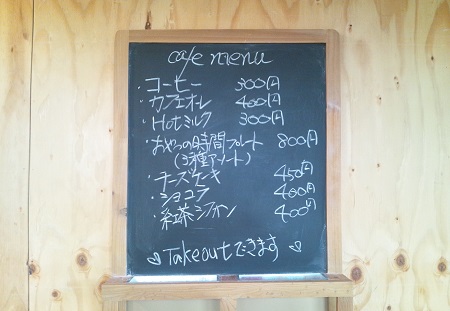 cafe menu
・コーヒー 300円
・カフェオレ 400円
・Hotミルク 300円
・おやつの時間プレート 800円
(3種アソート)
・チーズケーキ 450円
・ショコラ 400円
・紅茶シフォン 400円
Takeoutできます